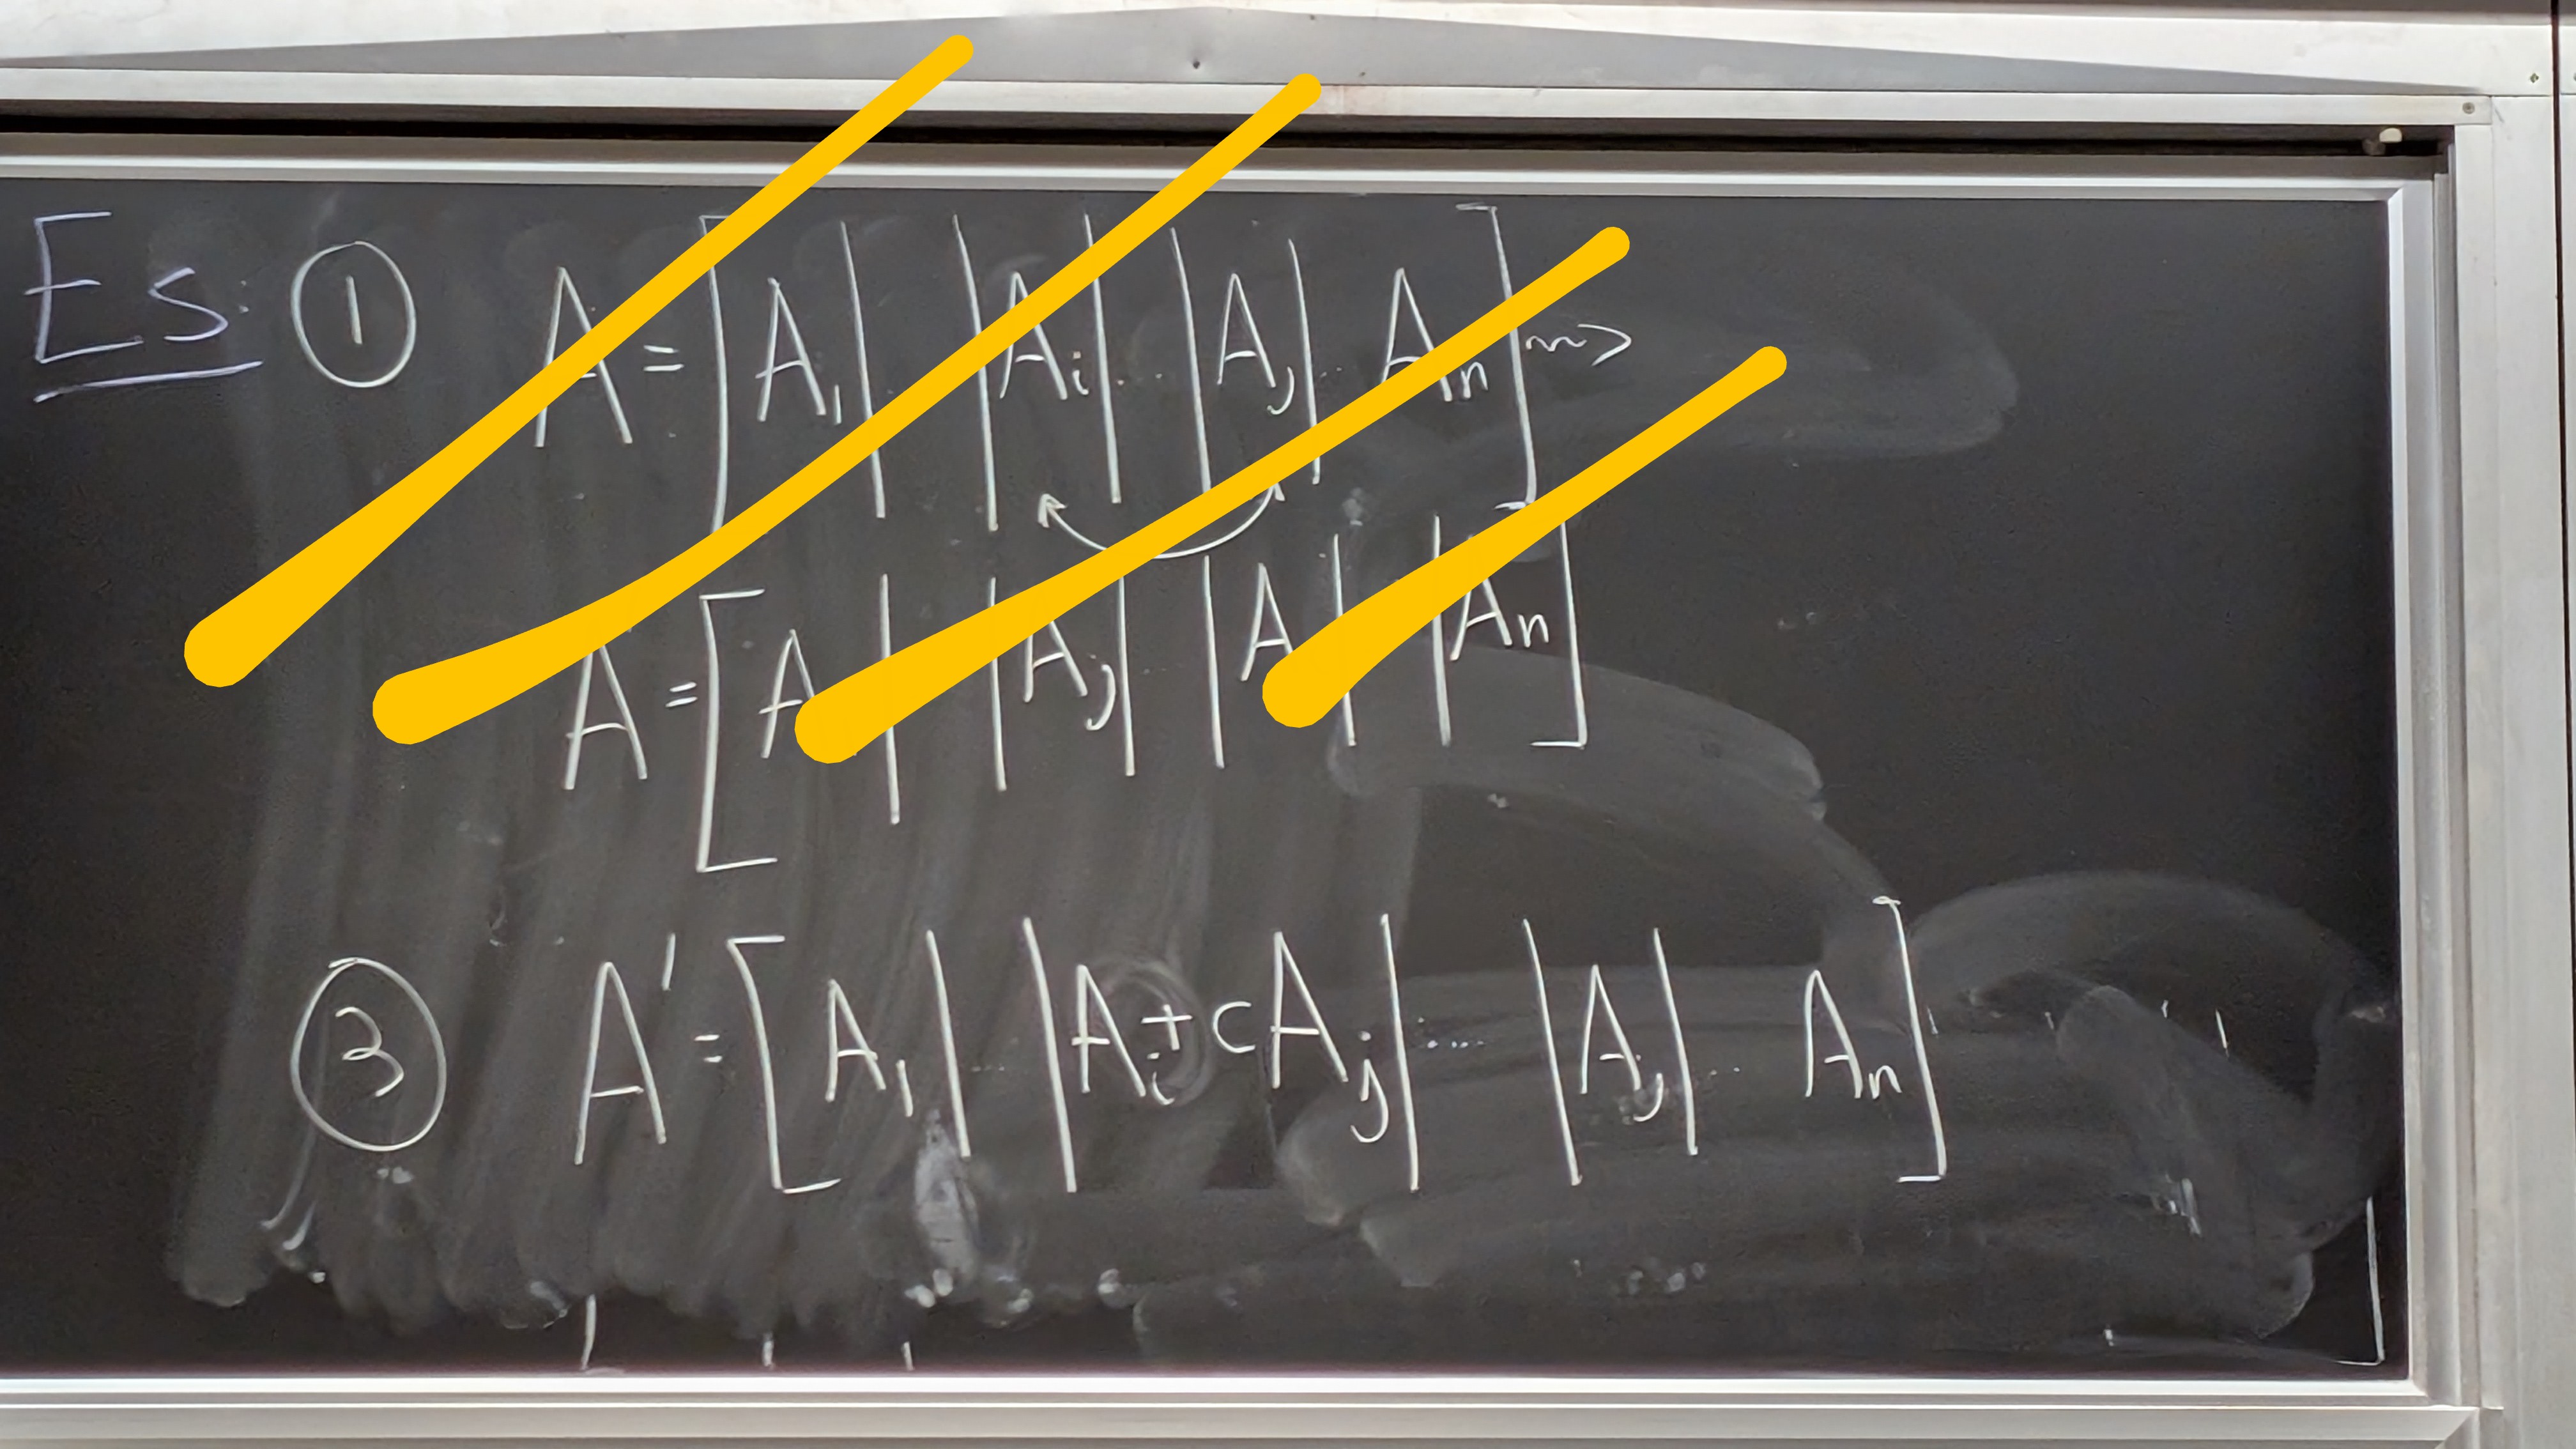 Es: ① A = [A₁| |Aᵢ|...|Aⱼ|... Aₙ] ~~>
A = [A | |Aⱼ| |A | |Aₙ]
③ A' = [A₁|...|Aᵢ + cAⱼ|....|Aⱼ|... Aₙ]